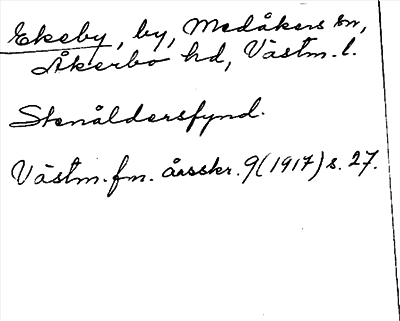 Ekeby, by, Medåkers sn,
Åkerbo hd, Västm. l.
Stenåldersfynd.
Västm. fm. årsskr. 9 (1917) s. 27.